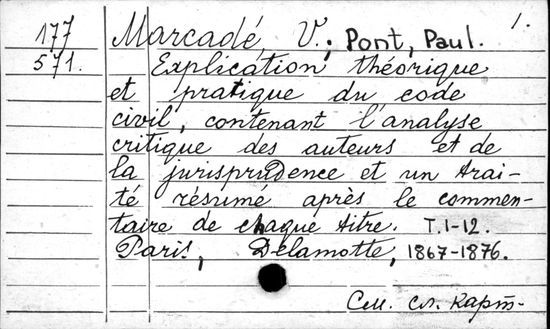 177 Marcadé V.; Pont, Paul. 1.
571. Explication théorique
et pratique du code
civil, contenant l'analyse
critique des auteurs et de
la jurisprudence et un trai-
té résumé après le commen-
taire de chaque titre. T.1-12.
Paris, Delamotte, 1867-1876.
См. сл. карт.